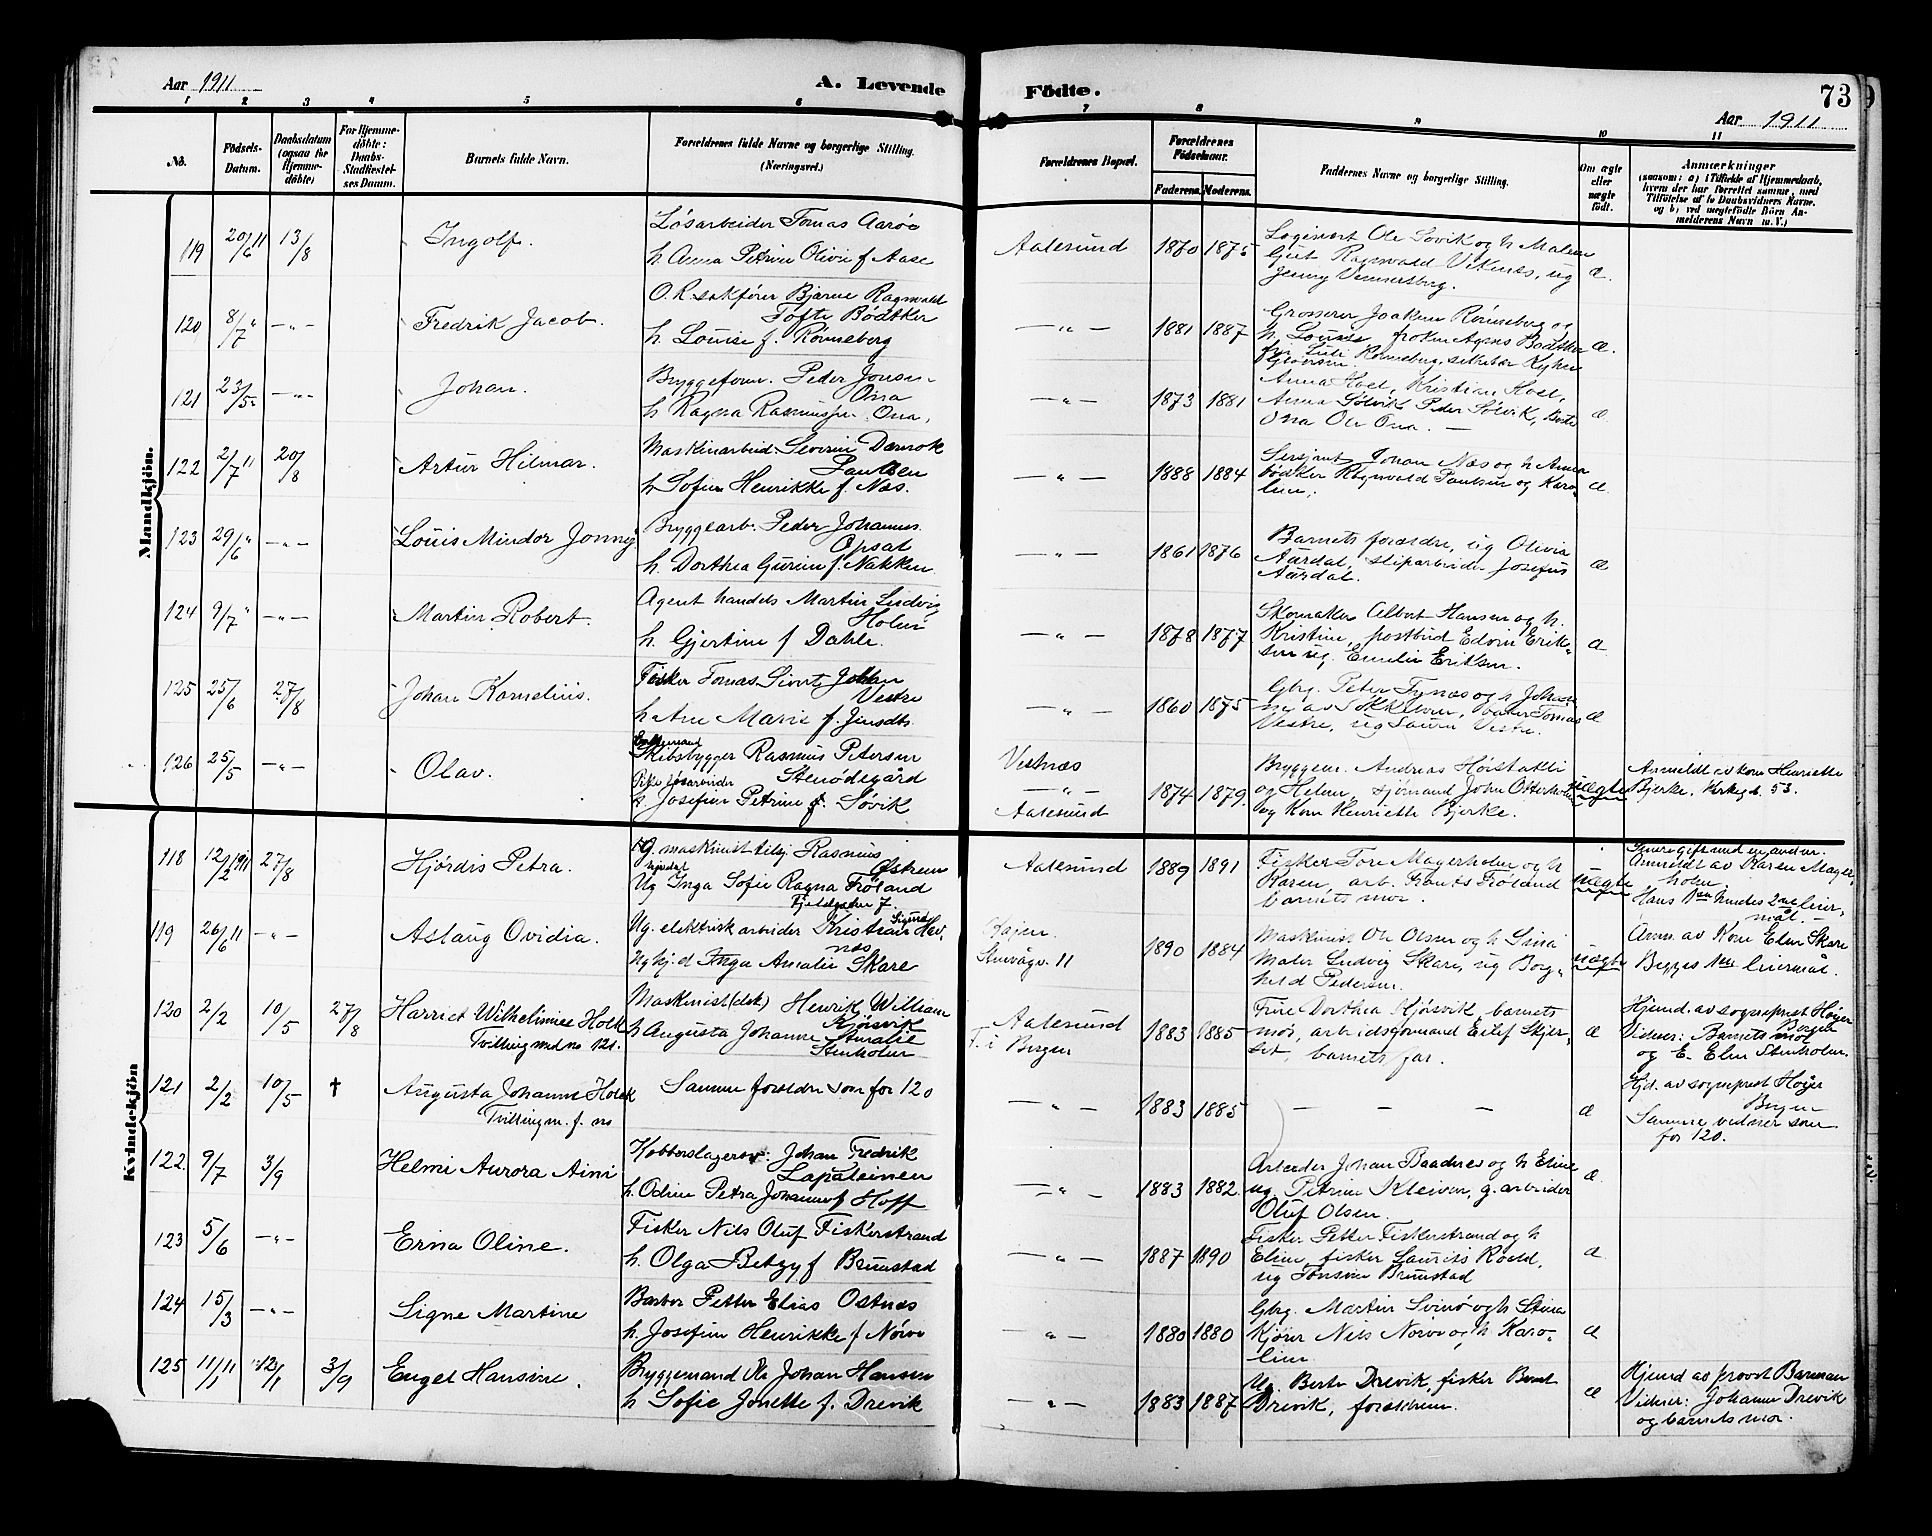 Aar 1911
A. Levende
Födte.
73
Aar 1911
1 2 3 4 5 6 7 8 9 10 11
No.
Födsels-Datum.
Daabsdatum (ogsaa for Hjemme-döbte)
For Hjemme-döbte: Daabs-Stadfæstel-ses Datum.
Barnets fulde Navn.
Forældrenes fulde Navne og borgerlige Stilling. (Næringsvei.)
Forældrenes Bopæl.
Forældrenes Födselsaar.
Faderens. Moderens.
Faddernes Navne og borgerlige Stilling.
Om ægte eller uægte födt.
Anmærkninger
(saasom: a) i Tilfælde af Hjemmedaab,
hvem der har forrettet samme, med
Tilföielse af to Daabsvidners Navne.
og b) ved uegtefödte Börn An-
melderens Navn m. V.)
Mandkjön.
119 20/6 11 13/8 Ingolf. Løsarbeider Tomas Aarøe
h. Anna Petrine Olivie f Aase
Aalesund 1870 1875
Ole Søvik og h Malene
Gjert Ragnvald Viknes, ug
Jenny
æ.
120 8/7 " -"- Fredrik Jacob. O.R.sakfører Bjarne Ragnvald
Tofte Bödtker
h. Louise f. Rønneberg
-"- 1881 1887
Grosserer Joakim Rønneberg og
h. Louise frøken Agnes Bødtker
æ.
121 23/5 -"- Johan. Bryggeform. Peder Jonsen
Ona
h Ragna Rasmussen Ona.
-"- 1873 1881
Anna Hoel, Kristian Hoel,
Anna Sølvik Peder Sølvik,
Ona Ole Ona. —
æ
122 2/7 11 20/8 Artur Hilmar. Maskinarbeid. Severin
Paulsen
h Sofie Henrikke f. Næs.
-"- 1888 1884
Sersjant Johan Næs og h Anna
bødker Ragnvald Paulsen og Karo-
line;
æ
123 29/6 " -"- Louis Mindor Jonny Bryggearb. Peder Johannes
Opsal
h. Dorthea Gurine f. Nakken
-"- 1861 1876
Barnets forældre, ug Olivia
Aurdal, sliparbeider Josefus
Aurdal.
æ
124 9/7 " -"- Martin Robert. Agent handels Martin Ludvig
Holm
h. Gjertine f Dahle.
-"- 1878 1877
Skomaker Albert Hansen og h.
Kristine, postbud Edvin Erik-
sen ug. Emelie Eriksen.
æ
125 25/6 27/8 Johan Kornelius. Fisker Tomas Sivert Johan
Vestre
h Ane Marie f.
-"- 1860 1875
Gbg. Peter Fynæs og h Johan-
Tomas
Vestre, ug Laura Vestre.
æ
126 25/5 -"- Olav.
Enkemand
Skibsbygger Rasmus Petersen
Stenödegård
Pike løsarbeider
h. Josefine Petrine f. Søvik
Vestnæs
-"-
Aalesund
1874 1879.
Bryggem. Andreas
og Helene, sjömand John Otterholm
og Kone Henriette Bjerke.
uægte
Anmeldt av kone Henriette
Bjerke, Kirkeg. 53.
Kvindekjön
118 12/2 1911 27/8 Hjördis Petra.
Ug. maskinist Rasmus
Østrem
Ug Inga Sofie Ragna Fröland
Aalesund 1889 1891
Fisker Tore Magerholm og h
Karen, arb. Frants Fröland
barnets mor.
uægte
Anmeldt av Karen Mager-
holm
Hans 1ste hendes 2det leier-
mål.—
119 26/6 11 -"- Aslaug Ovidia.
Ug. elektrisk arbeider Kristian Sigurd Hev-
næs
Ug hj. d Inga Amalie Skare
Stenvågv. 11
1890 1884
Maskinist Ole Olsen og h Lina
Maler Ludvig Skare, ug Borg-
hild Pedersen.
uægte
Anm. av Kone Eline Skare
Begges 1ste leiermål.
120 2/2 10/5 27/8 Harriet Wilhelmine Holck
Tvilling med no 121.
Maskinist(elek) Henrik William
Kjösvik
h Augusta Johanne Amalie
Stenholm
Aalesund
F. i Bergen
1883 1885
Frue Dorthea Kjösvik, barnets
mor, arbeidsformand Eilef Skjer-
set, barnets far.
æ
Hjemd. av sogneprest Høyer
Bergen
Vidner: Barnets mor
og E. Eline Stenholm.
121 2/2 10/5 † Augusta Johanne Holck
Tvilling m. f. no
Samme forældre som for 120
-"- 1883 1885 — — — æ
Hjd. av sogneprest Høyer
Bergen
Samme vidner som
for 120.
122 9/7 3/9 Helmi Aurora Aini
Kobberslagersv: Johan Fredrik
Lapateinen
h. Odine Petra Johanne f Hoff
-"- 1883 1882.
Arbeider Johan Baadnes og h Eline
ug. Petrine Kleiven, g. arbeider
Oluf Olsen.
æ
123 5/6 -"- Erna Oline.
Fisker Nils Oluf Fiskerstrand
h. Olga Betzy f Brunstad
-"- 1887 1890
Fisker Petter Fiskerstrand og h
Eline, fisker Laurits Roald,
ug Tomine Brunstad
æ
124 15/3 -"- Signe Martine
Barber Petter Elias Ostnes
h. Josefine Henrikke f Nørve
-"- 1880 1880
Gbg. Martin Svinø og h Stina
Kjører Nils Nørve og h Karo-
line
æ
125 11/1 11 12/1 3/9 Engel Hansine.
Bryggemand Ole Johan Hansen
h Sofie Jonette f. Drevik
-"- 1883 1887
Ug. Berte Drevik, fisker Bernt
Drevik, forældrene.
æ
Hjemd av provst Barman
Vidner: Johanne Drevik
og barnets mor.